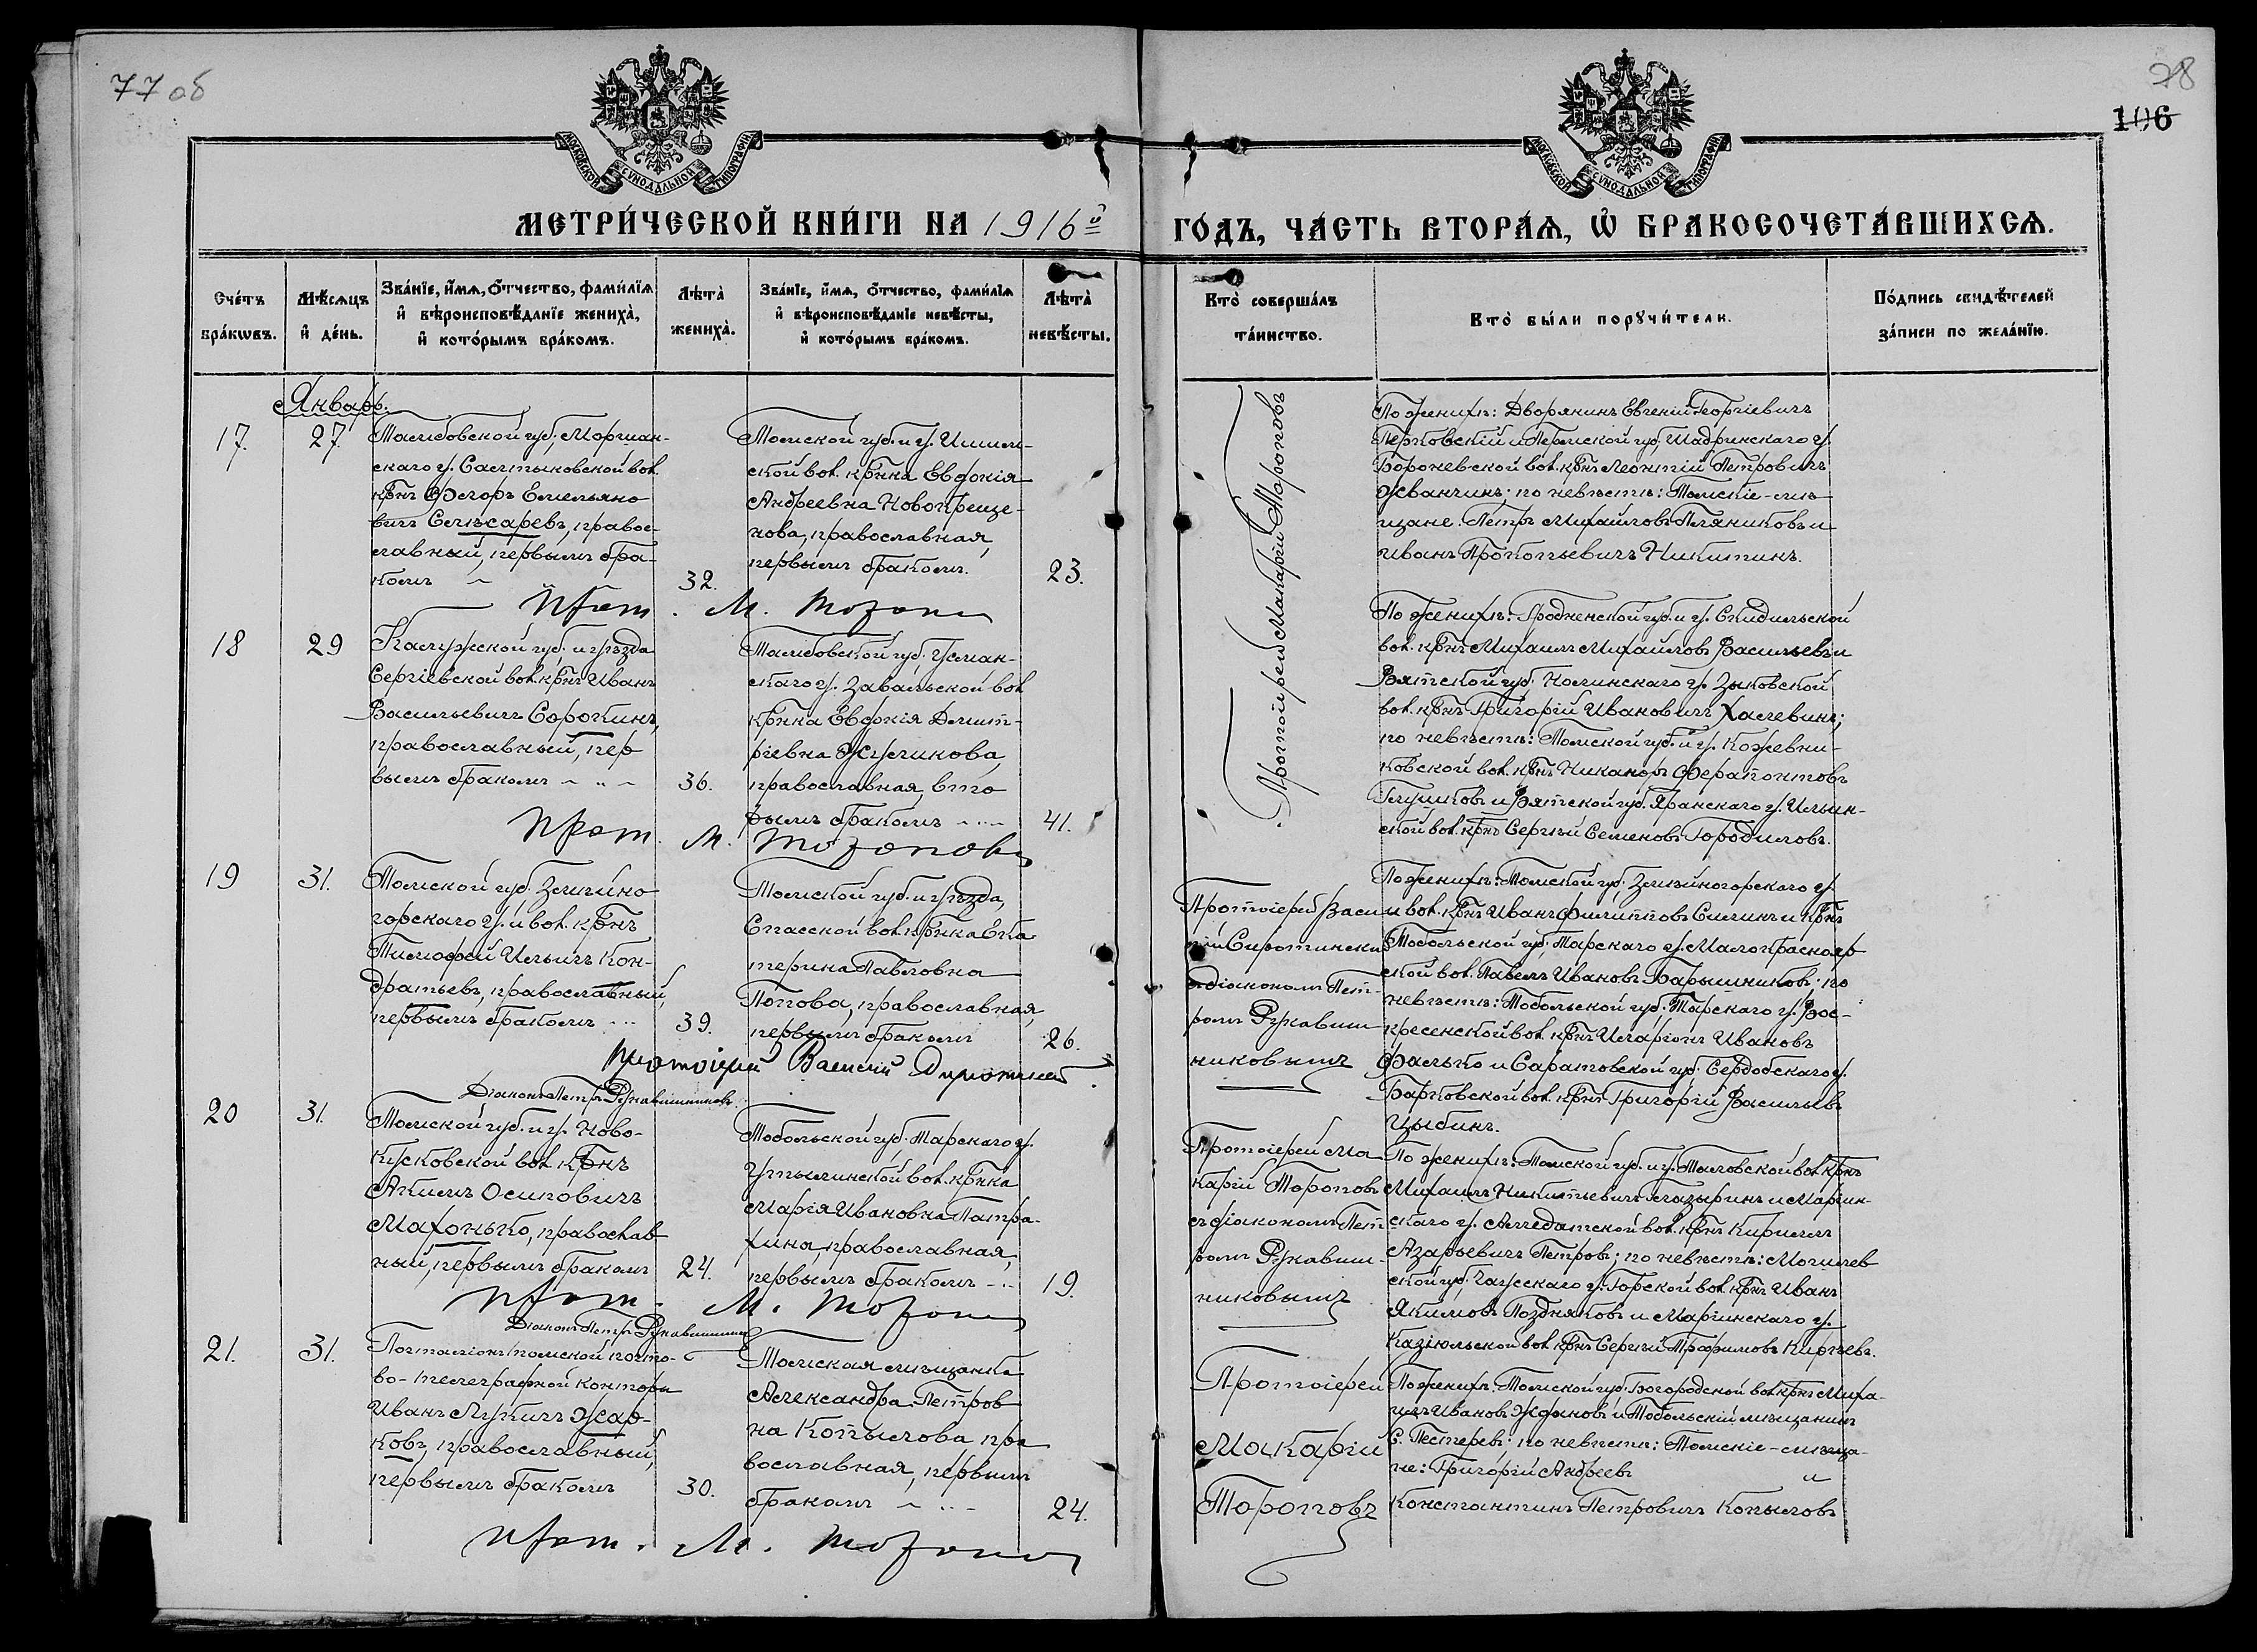 77 об
78
106
МОСКОВСКОЙ СѴНОДАЛЬНОЙ ТИПОГРАФІИ
МОСКОВСКОЙ СѴНОДАЛЬНОЙ ТИПОГРАФІИ
МЕТРИ́ЧЕСКОЙ КНИ́ГИ НА 1916й
ГО́ДЪ, ЧА́СТЬ ВТОРА́Ѧ, Ѽ БРАКОСОЧЕТА́ВШИХСѦ.
Сче́тъ бра́кѡвъ.
Мѣ́сѧцъ и҆ де́нь.
Зва́нїе, и҆́мѧ, ѻ҆́тчество, фами́лїѧ и҆ вѣроисповѣ́данїе жениха̀, и҆ кото́рымъ бра́комъ.
Лѣта̀ жениха̀.
Зва́нїе, и҆́мѧ, ѻ҆́тчество, фами́лїѧ и҆ вѣроисповѣ́данїе невѣ́сты, и҆ кото́рымъ бра́комъ.
Лѣта̀ невѣ́сты.
Кто̀ соверша́лъ та́инство.
Кто̀ бы́ли порꙋчи́тели.
По́дпись свидѣ́телей за́писи по жела́нїю.
Январь.
17.
27.
Тамбовской губ., Моршан-
скаго у. Састыковской вол.
крнъ Ѳедоръ Емельяно-
вичъ Слѣсаревъ, правос-
лавный, первымъ бра-
комъ
32.
Томской губ. и у. Ишим-
ской вол. крнка Евдокія
Андреевна Новокреще-
нова, православная,
первымъ бракомъ.
23.
Протоіерей Макарій Тороповъ
По женихѣ: Дворянинъ Евгеній Георгіевичъ
и Пермской губ. Шадринскаго у.
вол. крнъ Леонтій Петровичъ
по невѣстѣ: Томскіе мѣ-
щане: Петръ Михайловъ и
Иванъ Прокопьевичъ Никитинъ.
Прот. М. Торопов
18
29
Калужской губ. и уѣзда
Сергіевской вол. крнъ Иванъ
Васильевичъ Сорокинъ,
православный, пер-
вымъ бракомъ
36.
Тамбовской губ. Усман-
скаго у. Завальской вол.
крнка Евдокія Дмит-
ріевна
православная, вто-
рымъ бракомъ
41.
По женихѣ: Гродненской губ. и у. Скидельской
вол. крнъ Михаилъ Михайловъ Васильевъ и
Вятской губ. Нолинскаго у. Зыковской
вол. крнъ Григорій Ивановичъ
по невѣстѣ: Томской губ. и у. Кожевни-
ковской вол. крнъ Никаноръ Ферапонтовъ
Глушковъ и Вятской губ. Яранскаго у. Ильин-
ской вол. крнъ Сергѣй Семеновъ Городиловъ.
Прот. М. Тороповъ
19
31.
Томской губ. Змѣино-
горскаго у. и вол. крнъ
Тимофей Ильичъ Кон-
дратьевъ, православный,
первымъ бракомъ
39.
Томской губ. и уѣзда,
Спасской вол. крнка Ека-
терина Павловна
Попова, православная,
первымъ бракомъ
26.
Протоіерей Васи-
лій Сиротинскій
съ діакономъ Пет-
ромъ Рукавиш-
никовымъ
По женихѣ: Томской губ. Змѣиногорскаго у.
и вол. крнъ Иванъ Филипповъ Силинъ и крнъ
Тобольской губ. Тарскаго у. Малокраснояр-
ской вол. Павелъ Ивановъ Барышниковъ; по
невѣстѣ: Тобольской губ. Тарскаго у. Вос-
кресенской вол. крнъ Иларіонъ Ивановъ
Фалько и Саратовской губ. Сердобскаго у.
вол. крнъ Григорій Васильевъ
Цыбинъ.
Протоіерей Василій Сиротинскій
Діаконъ Петръ Рукавишниковъ.
20
31.
Томской губ. и у. Ново-
Кусковской вол. крнъ
Акимъ Осиповичъ
Махонько, православ-
ный, первымъ бракомъ
24.
Тобольской губ. Тарскаго у.
вол. крнка
Марія Ивановна Патра-
хина, православная,
первымъ бракомъ
19.
Протоіерей Ма-
карій Тороповъ
съ діакономъ Пет-
ромъ Рукавиш-
никовымъ
По женихѣ: Томской губ. и у. Таловской вол. крнъ
Михаилъ Никитьевичъ Глазыринъ и Маріин-
скаго у. Алчедатской вол. крнъ Кириллъ
Азарьевичъ Петровъ; по невѣстѣ: Могилев-
ской губ. Чаусскаго у. Горской вол. крнъ Иванъ
Якимовъ Поздняковъ и Маріинскаго у.
Казіюльской вол. крнъ Сергѣй Трофимовъ Кирѣевъ.
Прот. М. Торопов
Діаконъ Петръ Рукавишниковъ
21.
31.
Почталіонъ томской почто-
во-телеграфной конторы
Иванъ Лукичъ Жар-
ковъ, православный,
первымъ бракомъ
30.
Томская мѣщанка
Александра Петров-
на Копылова, пра-
вославная, первымъ
бракомъ
24.
Протоіерей
Макарій
Тороповъ
По женихѣ: Томской губ. Богородской вол. крнъ Миха-
илъ Ивановъ Ждановъ и Тобольскій мѣщанинъ
С. Пестеревъ; по невѣстѣ: Томскіе мѣща-
не: Григорій Андреевъ и
Константинъ Петровичъ Копыловъ
Прот. М. Торопов